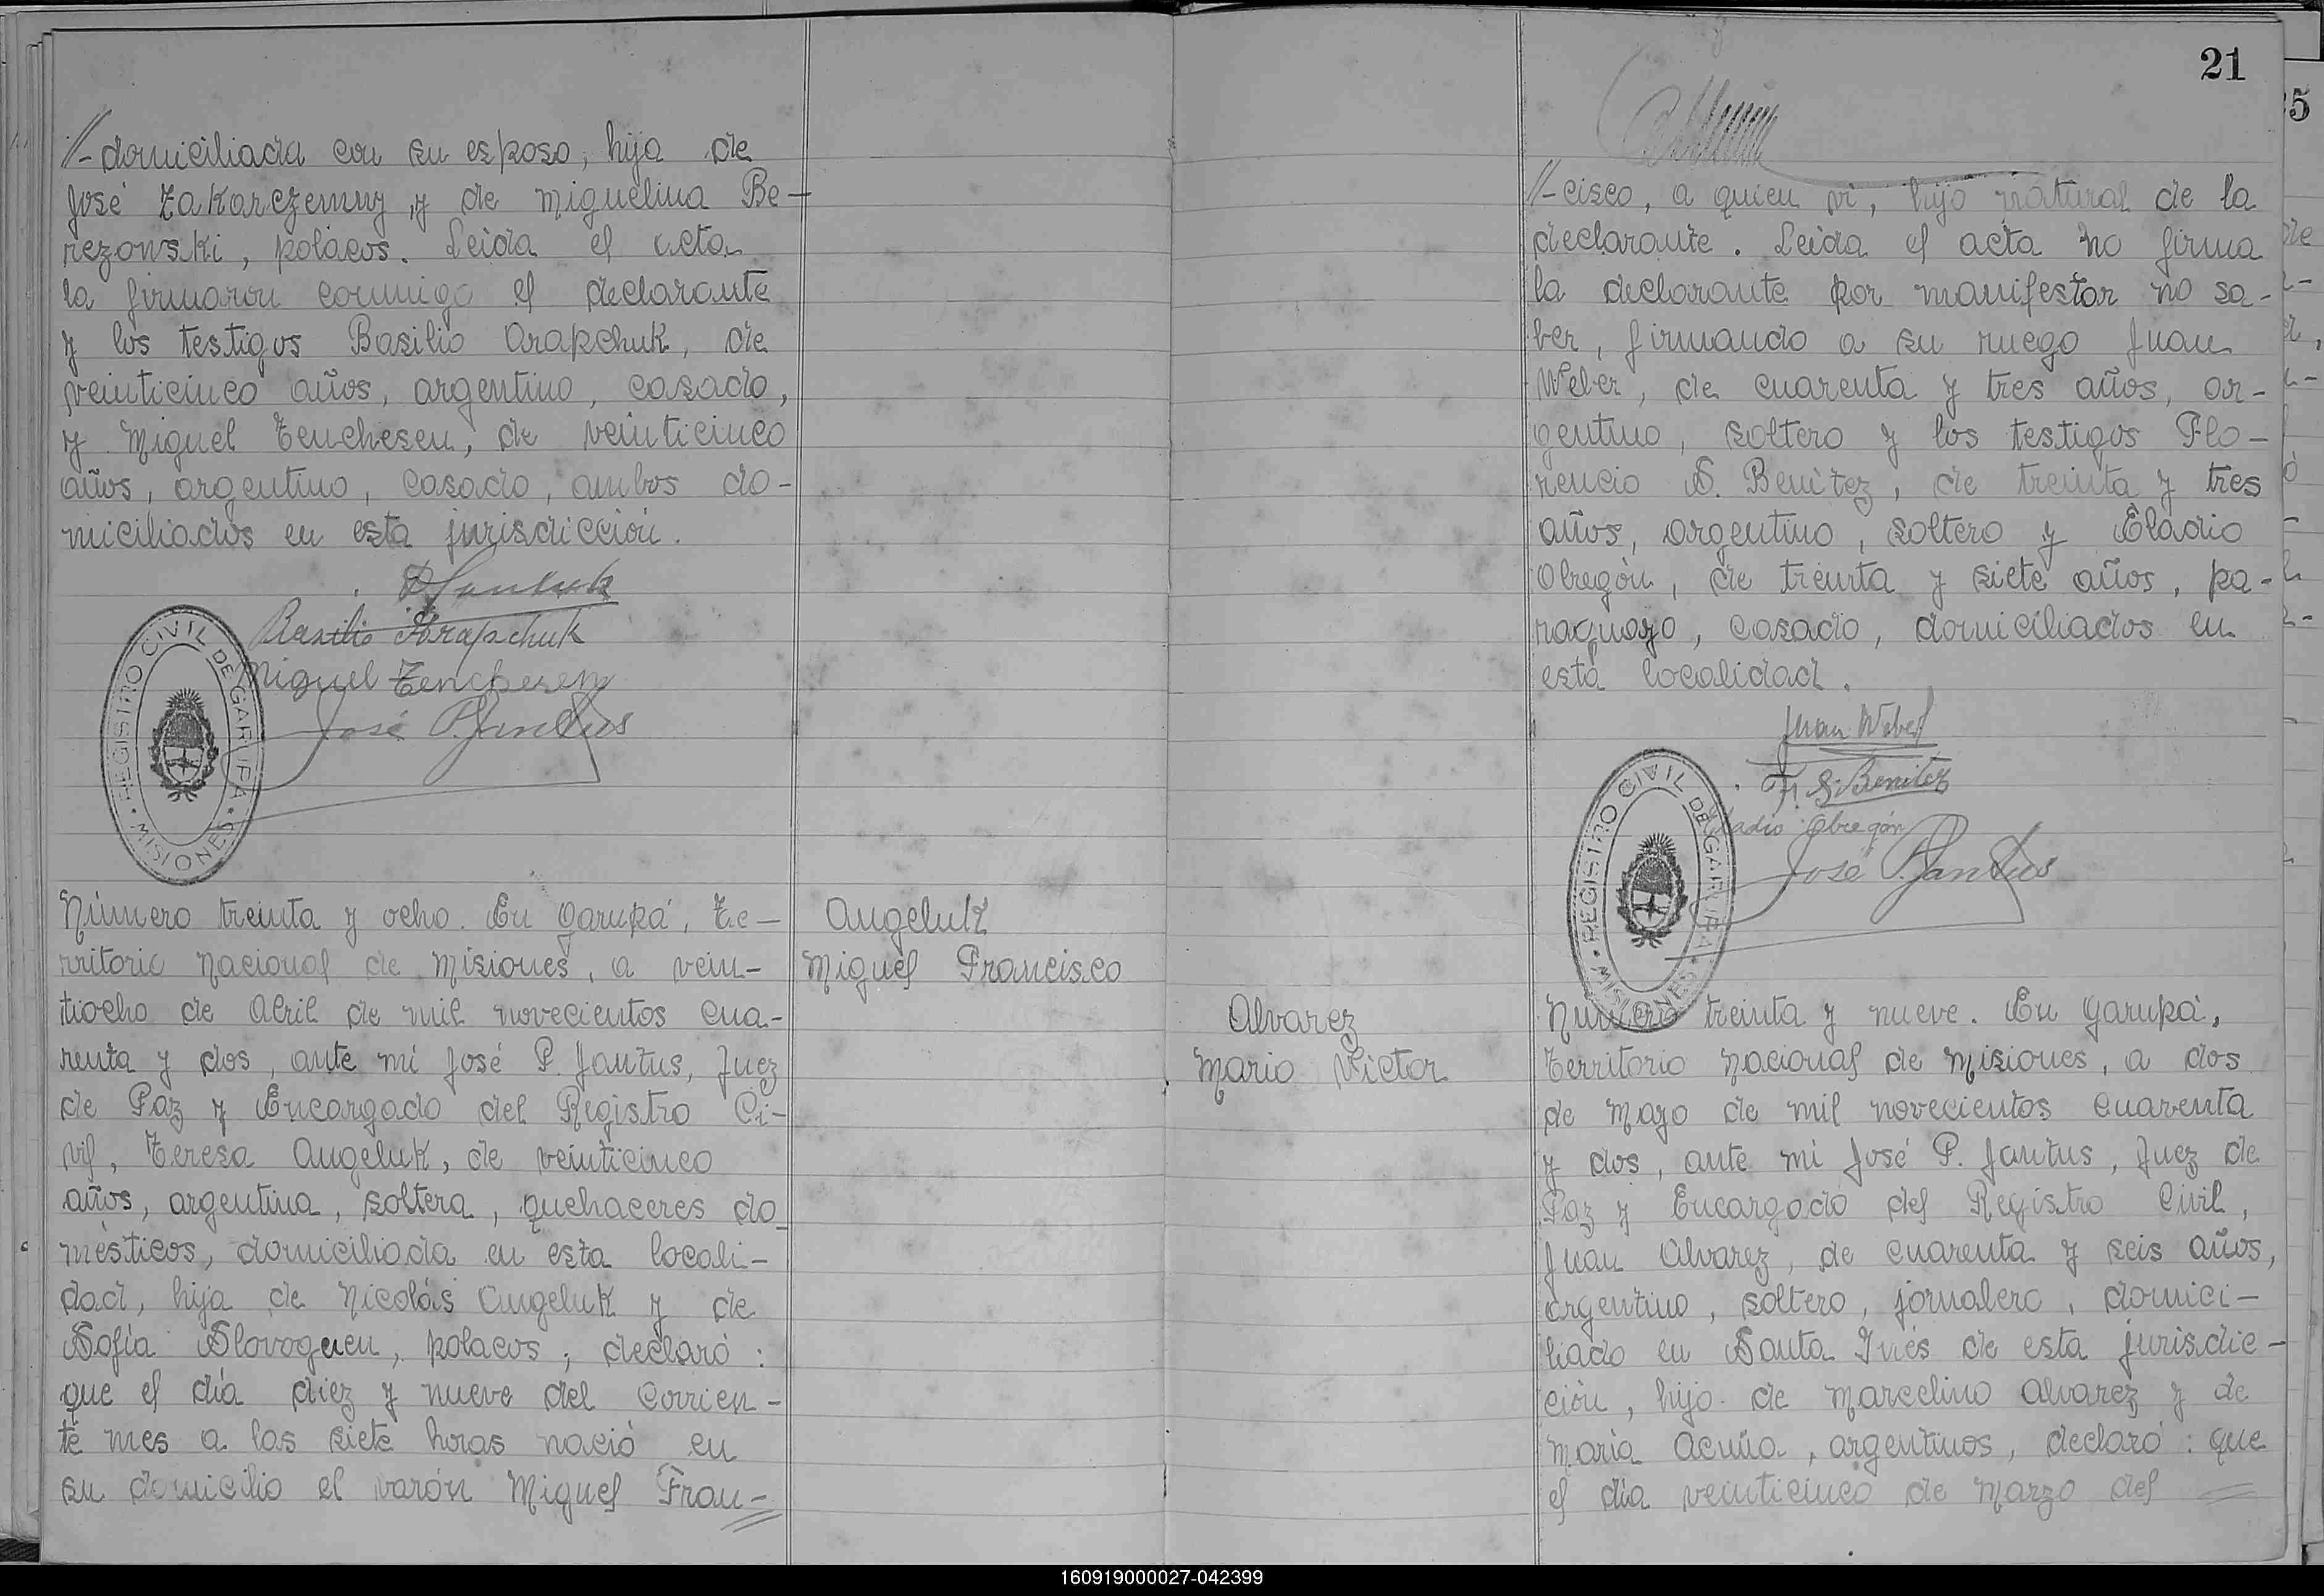 //-domiciliada con su esposo, hija de
José Zakarczemny, y de Miguelina Be-
rezowski, polacos. Leida el acta
la firmaron conmigo el declarante
y los testigos Basilio Arapchuk, de
veinticinco años, argentino, casado,
y Miguel Tenchesen, de veinticinco
años, argentino, casado, ambos do-
miciliados en esta jurisdicción.
Basilio Arapchuk
Miguel Tenchesen
José P. Jantus
REGISTRO CIVIL DE GARUPA
MISIONES
Número treinta y ocho. En Garupá, Te-
rritorio Nacional de Misiones, a vein-
tiocho de Abril de mil novecientos cua-
renta y dos, ante mi José P. Jantus, Juez
de Paz y Encargado del Registro Ci-
vil, Teresa Angeluk, de veinticinco
años, argentina, soltera, quehaceres do-
mésticos, domiciliada en esta locali-
dad, hija de Nicolás Angeluk y de
Sofía Slovoguen, polacos; declaró:
que el día diez y nueve del corrien-
te mes a las siete horas nació en
su domicilio el varón Miguel Fran-
Angeluk
Miguel Francisco
21
//-cisco, a quien vi, hijo natural de la
declarante. Leida el acta no firma
la declarante por manifestar no sa-
ber, firmando a su ruego Juan
Weber, de cuarenta y tres años, ar-
gentino, soltero y los testigos Flo-
rencio S. Benítez, de treinta y tres
años, argentino, soltero y Eladio
Obregón, de treinta y siete años, pa-
raguayo, casado, domiciliados en
esta localidad.
Juan Weber
F. S. Benitez
Eladio Obregón
José P. Jantus
REGISTRO CIVIL DE GARUPA
MISIONES
Alvarez
Mario Victor
Número treinta y nueve. En Garupá,
Territorio Nacional de Misiones, a dos
de Mayo de mil novecientos cuarenta
y dos, ante mi José P. Jantus, Juez de
Paz y Encargado del Registro Civil,
Juan Alvarez, de cuarenta y seis años,
argentino, soltero, jornalero, domici-
liado en Santa Inés de esta jurisdic-
ción, hijo de Marcelino Alvarez y de
María Acuña, argentinos, declaró: que
el día veinticinco de Marzo del
160919000027-042399